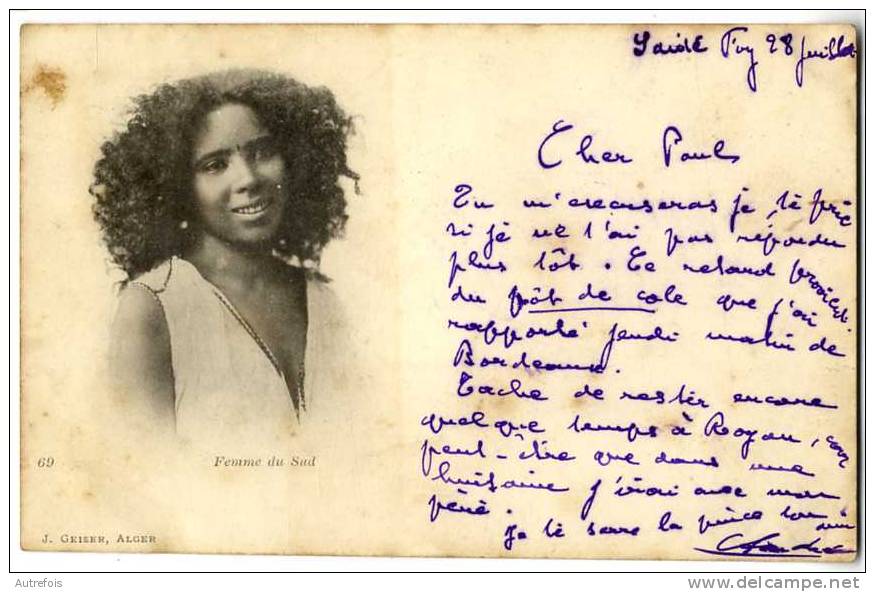 Foy 28 juillet
Cher Paul
Tu m'excuseras je te prie
si je ne t'ai pas répondu
plus tôt. Ce retard provient
du pôt de cole que j'ai
rapporté jeudi matin de
Bordeaux.
Tache de rester encore
quelque temps à Royan, car
peut-être que dans une
huitaine j'irai avec mon
père.
Je te serre la pince ton ami
69
Femme du Sud
J. GEISER, ALGER
Autrefois
http://www.delcampe.net